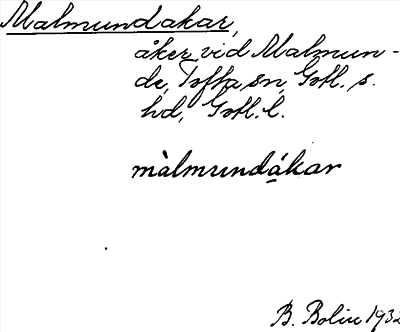 Malmundakar,
åker vid Malmun-
de, Tofta sn, Gotl. s.
hd, Gotl. l.
màlmundákar
B. Bolin 1932